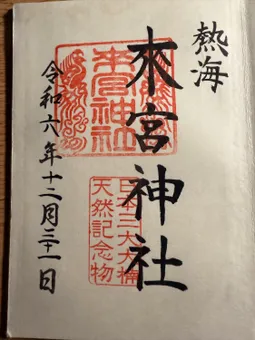 熱海
來宮神社
令和六年十二月三十一日
來宮神社
日本三大大楠
天然記念物